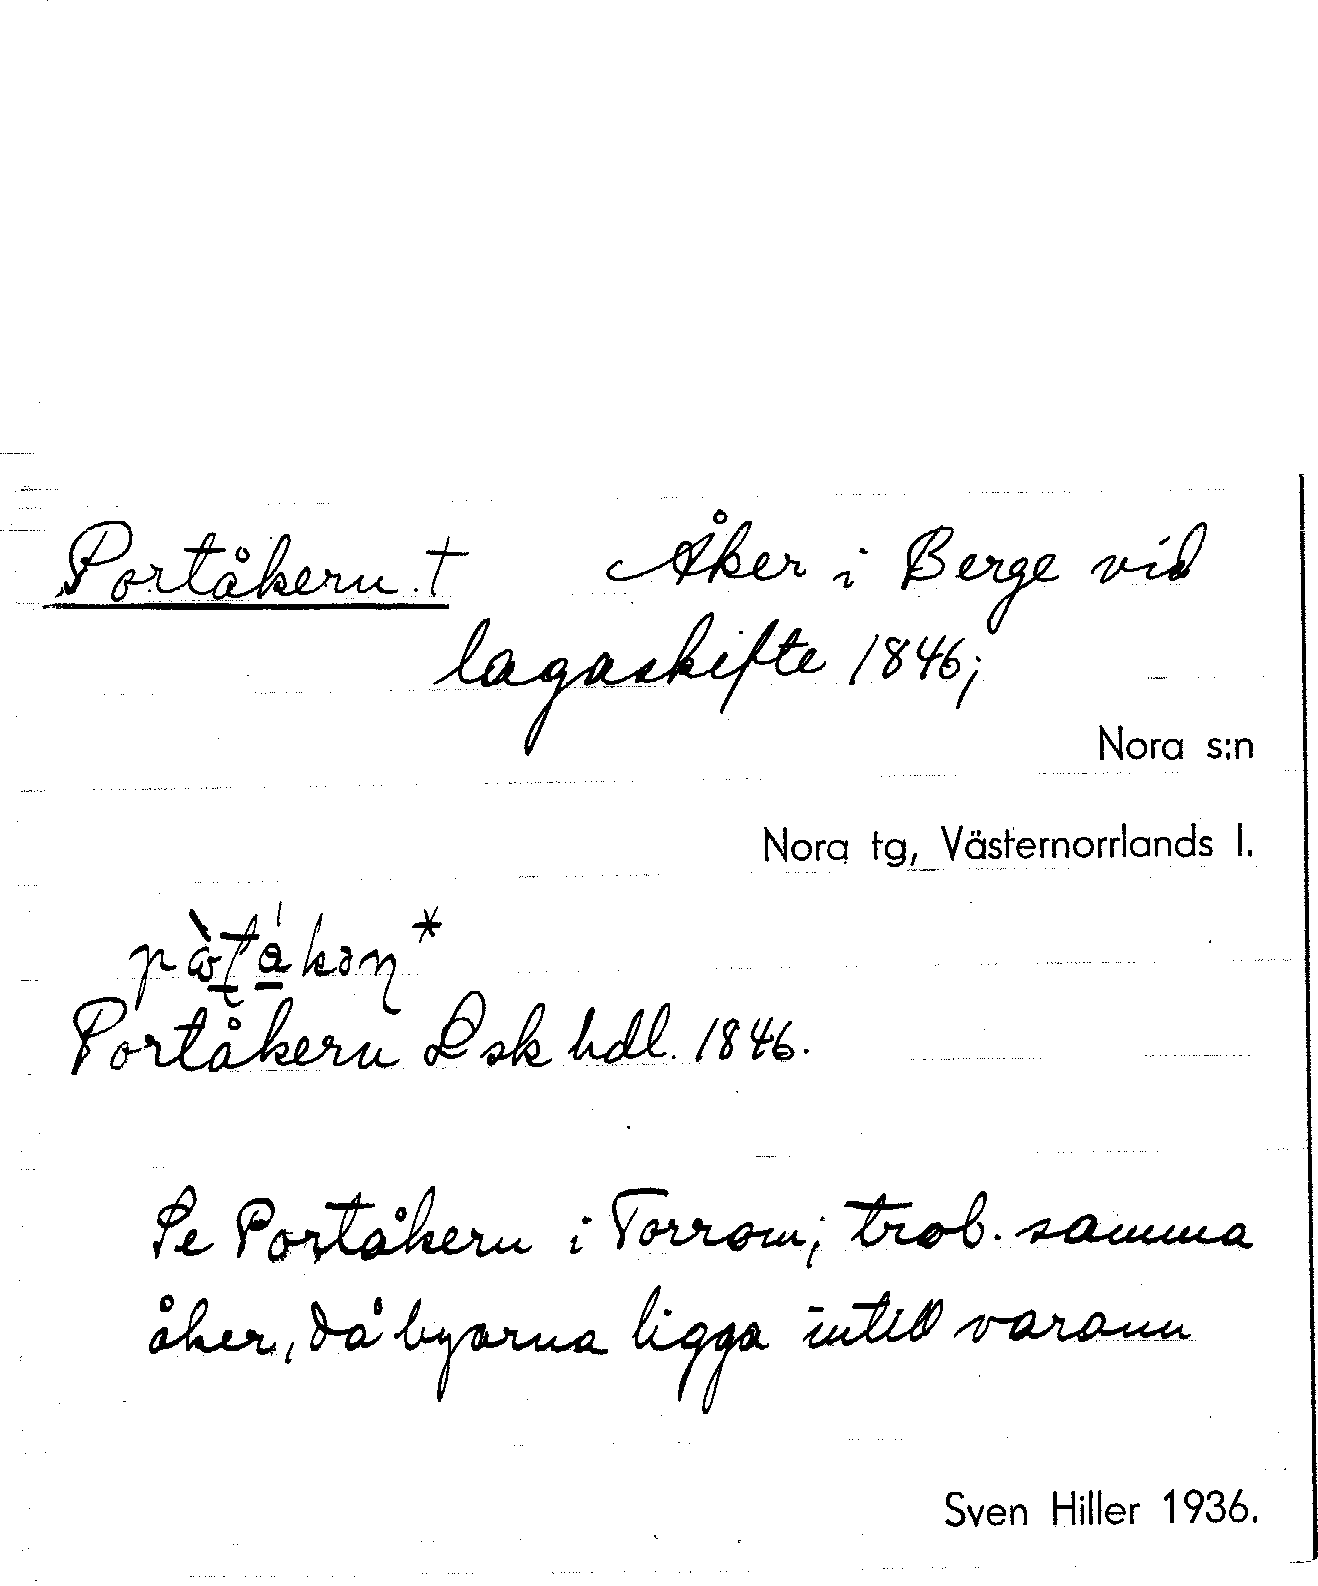 Portåkern. † Åker i Berge vid
lagaskifte 1846;
Nora s:n
Nora tg, Västernorrlands l.
Portåkern Lsk hdl. 1846.
Se Portåkern i Torrom; trol. samma
åker, då byarna ligga intill varann
Sven Hiller 1936.